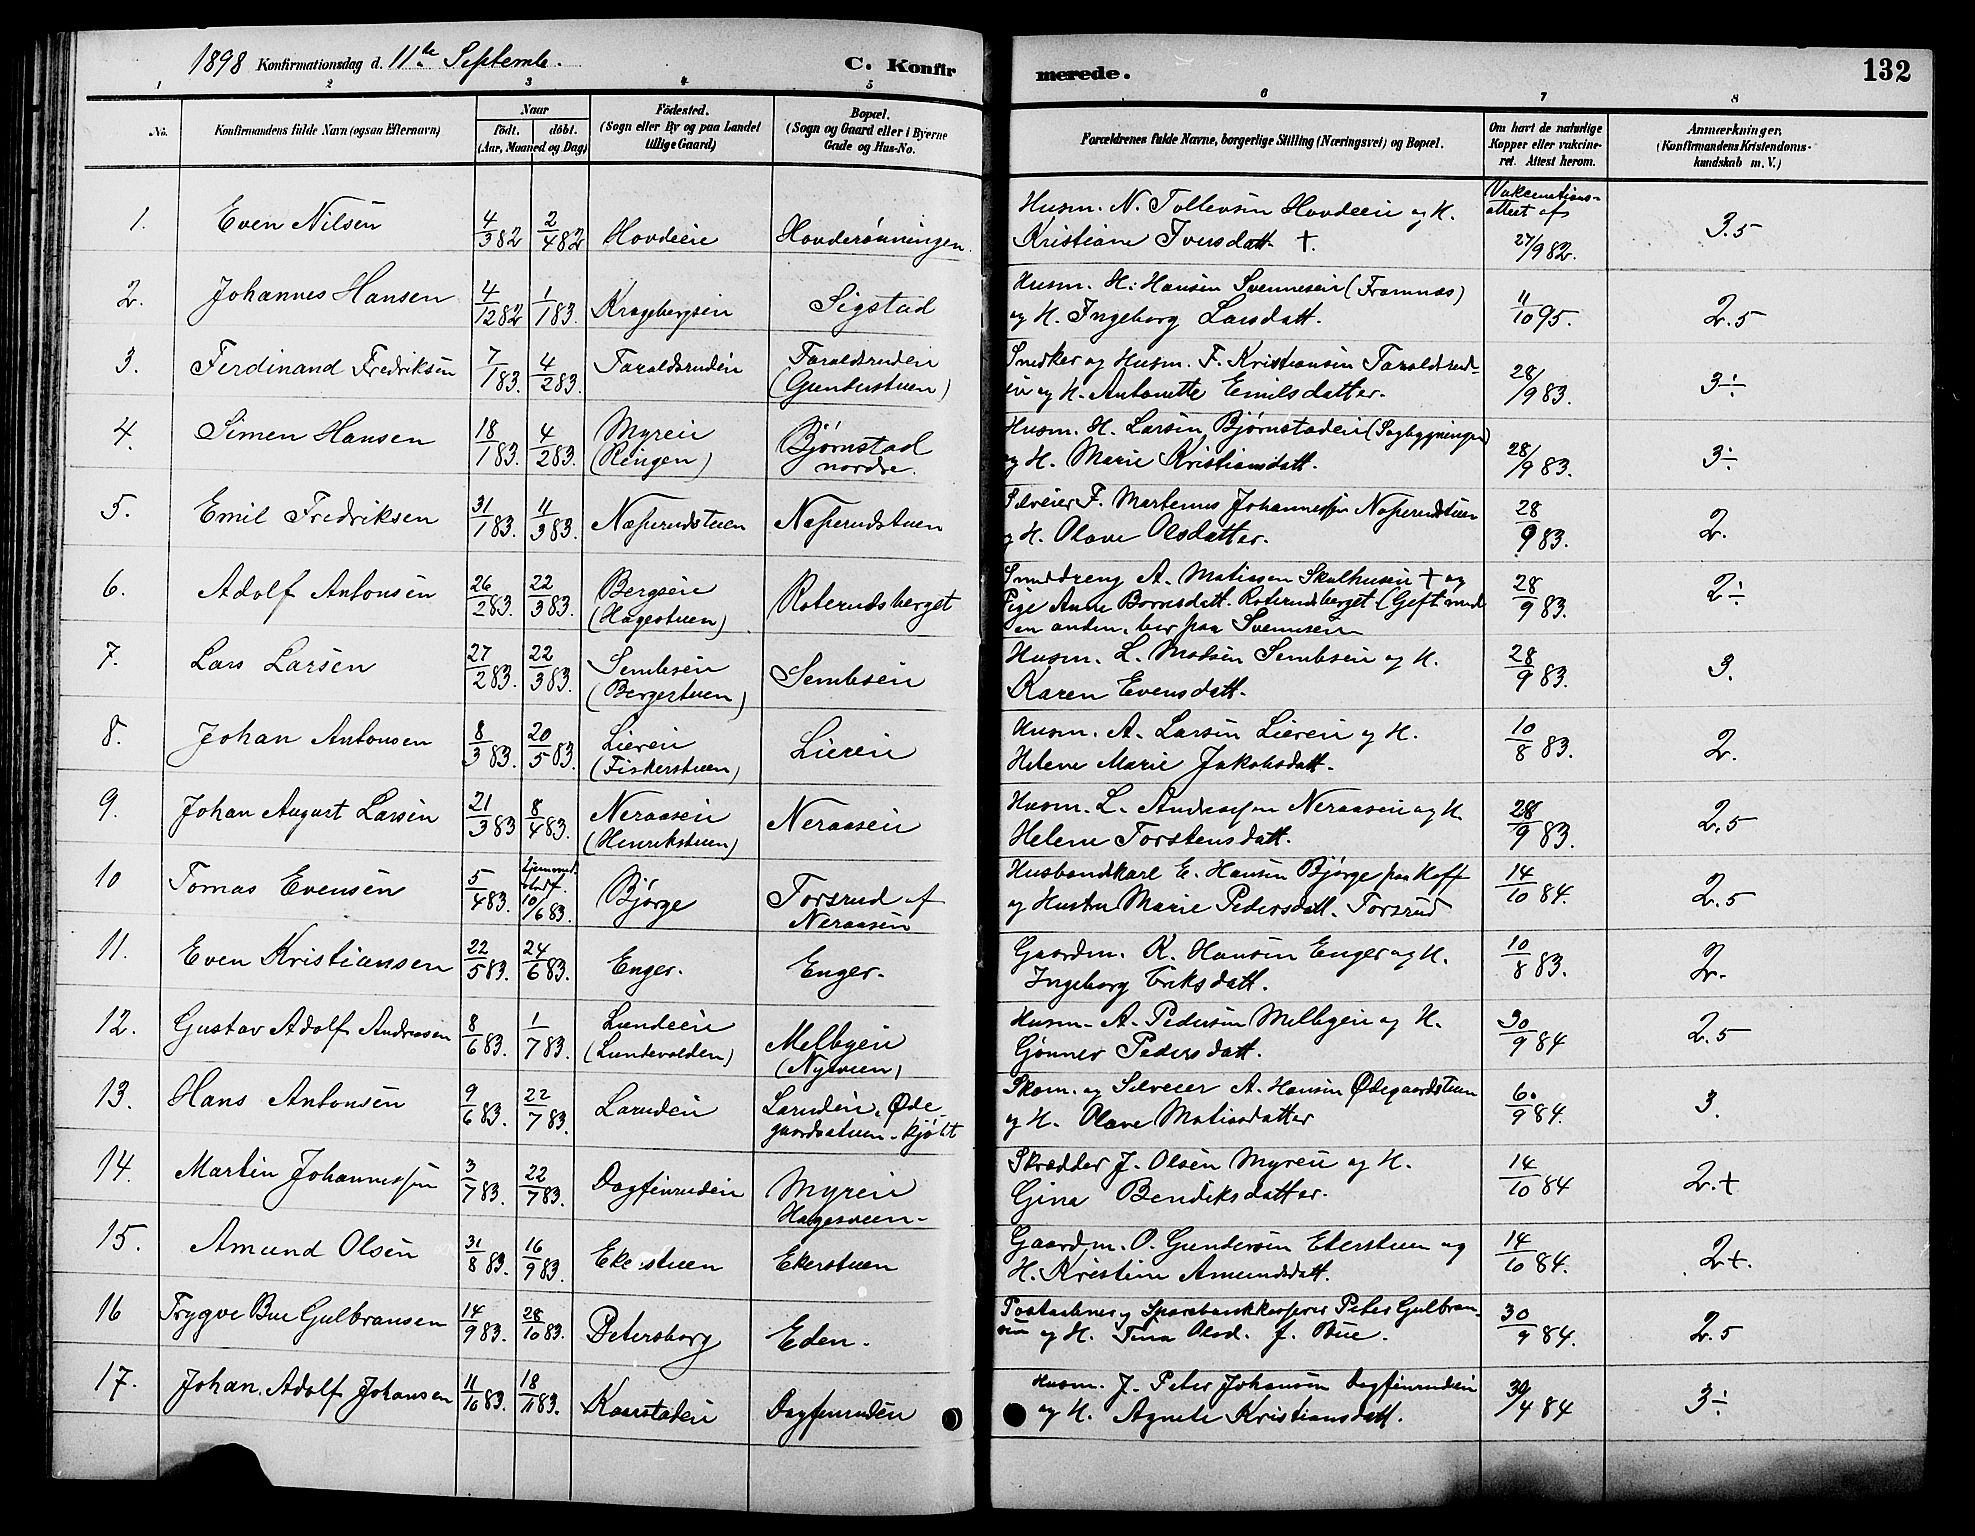 1898 Konfirmationsdag d. 11te Septemb. C. Konfirmerede. 132
1 2 3 4 5 6 7 8
No. Konfirmandens fulde Navn (ogsaa Efternavn) Naar födt. döbt. (Aar, Maaned og Dag) Födested. (Sogn eller By og paa Landet tillige Gaard) Bopæl. (Sogn og Gaard eller i Byerne Gade og Hus-No. Forældrenes fulde Navne, borgerlige Stilling (Næringsvei) og Bopæl. Om havt de naturlige Kopper eller vakcineret. Attest herom. Anmærkninger, (Konfirmandens Kristendomskundskab m. V.)
1. Even Nilsen 4/3 82 2/4 82 Hovdeeie Hovderønningen Husm. N. Tollevsen Hovdeeie og H. Kristiane Iversdatt. + Vakcinationsattest af 27/9 82. 3.5
2. Johannes Hansen 4/12 82 1/1 83. Kragebergseie Sigstad Husm. H. Hansen Svenneseie (Framnæs) og H. Ingeborg Larsdatt. 11/10 95. 2.5
3. Ferdinand Fredriksen 7/1 83. 4/2 83. Taraldsrudeie Taraldsrudeie (Gunderstuen) Snedker og Husm. F. Kristiansen Taraldsrudeie og H. Antonette Emilsdatter. 28/9 83. 3÷
4. Simen Hansen 18/1 83. 4/2 83. Myreie (Ringen) Bjørnstad nordre. Husm. H. Larsen Bjørnstadeie (Sagbygningen) og H. Marie Kristiansdatt. 28/9 83. 3÷
5. Emil Fredriksen 31/1 83. 11/3 83. Næperudstuen Næperudstuen Selveier F. Martenus Johannessen Næperudstuen og H. Olave Olsdatter. 28/9 83. 2.
6. Adolf Antonsen 26/2 83. 22/3 83. Bergseie (Hagestuen) Roterudsberget Smeddreng A. Matiasen Skolhuseie + og Pige Anne Bornsdatt. Roterudsberget (Gift med en anden, bor paa Svenneseie 28/9 83. 2÷
7. Lars Larsen 27/2 83. 22/3 83. Sembseie (Bergerstuen) Sembseie Husm. L. Madsen Sembseie og H. Karen Evensdatt. 28/9 83. 3.
8. Johan Antonsen 8/3 83. 20/5 83. Liereie (Fiskerstuen) Liereie Husm. A. Larsen Liereie og H. Helene Marie Jakobsdatt. 10/8 83. 2.
9. Johan August Larsen 21/3 83 8/4 83. Neraaseie (Henrikstuen) Neraaseie Husm. L. Andreassen Neraaseie og H. Helene Torstensdatt. 28/9 83. 2.5
10 Tomas Evensen 5/4 83. 10/6 83. Bjørge Torsrud af Neraasen Husbondkarl E. Hansen Bjørge paa Hoff og Hustru Marie Pedersdatt. Torsrud 14/10 84. 2.5
11. Even Kristiansen 22/5 83. 24/6 83. Enger. Enger. Gaardm. K. Hansen Enger og H. Ingeborg Eriksdatt. 10/8 83. 2.
12. Gustav Adolf Andreasen 8/6 83. 1/7 83. Lundeeie (Lundevolden) Melbyeie (Nyveien) Husm. A. Pedersen Melbyeie og H. Gjønner Pedersdatt. 30/9 84 2.5
13. Hans Antonsen 9/6 83. 22/7 83. Larudeie Larudeie, Ødegaardsstuen, kjøbt Skom. og Selveier A. Hansen Ødegaardstuen og H. Olave Matiasdatter 6/9 84. 3.
14. Martin Johannessen 3/7 83. 22/7 83. Dagfinrudeie Myreie Hagesveen. Skrædder J. Olsen Myreie og H. Gina Bendiksdatter. 14/10 84 2.+
15. Amund Olsen 31/8 83. 16/9 83. Ekerstuen Ekerstuen Gaardm. O. Gundersen Ekerstuen og H. Kristine Amundsdatt. 14/10 84. 2+.
16 Trygve Bue Gulbransen 14/9 83. 28/10 83. Petersborg Eden. Postaabner og Sparebankkasserer Peter Gulbransen og H. Tina Olsd. f. Bue. 30/9 84. 2.5
17. Johan Adolf Johansen 11/10 83. 18/11 83. Kaarstadeie Dagfinrudeie Husm. J. Peter Johansen Dagfinrudeie og H. Agnete Kristiansdatt. 30/4 84 3÷